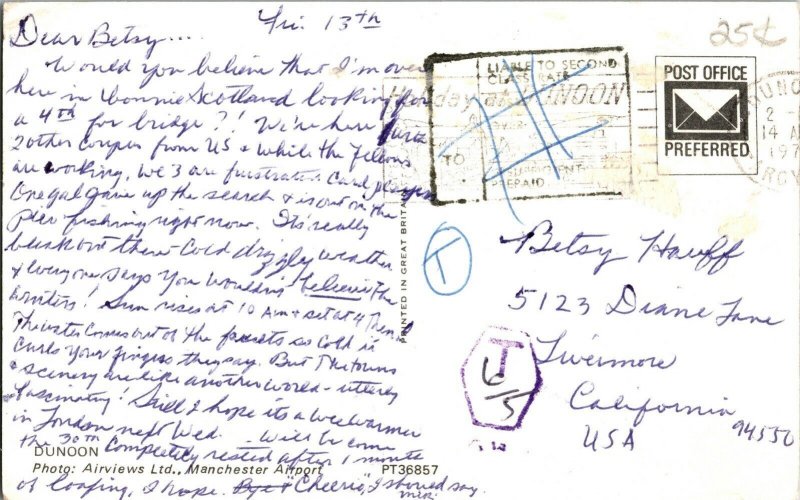 Fri. 13th
Dear Betsy....
Would you believe that I'm over
here in Bonnie Scotland looking for
a 4th for bridge?! We're here with
2 other couples from US & while the fellows
are working, we 3 are frustrated card players
One gal gave up the search & is out on the
pier fishing right now. It's really
bleak out there - Cold drizzly weather
& everyone says you wouldn't believe the
winters! Sun rises at 10 AM & sets at 4
The water comes out of the faucets so cold it
curls your fingers they say. But the towns
& scenery are like another world - utterly
fascinating! Still I hope its a wee warmer
in London next Wed. - Will be home
the 30th completely rested after 1 month
of loafing, I hope. Bye "Cheerio", I should say
DUNOON
Photo: Airviews Ltd., Manchester Airport PT36857
PRINTED IN GREAT BRITAIN
LIABLE TO SECOND
CLASS RATE
DUNOON
TO
PREPAID
25¢
POST OFFICE
PREFERRED
14 A
197
T
T
6/5
Betsy Hauff
5123 Diane Lane
Livermore
California
94550
USA